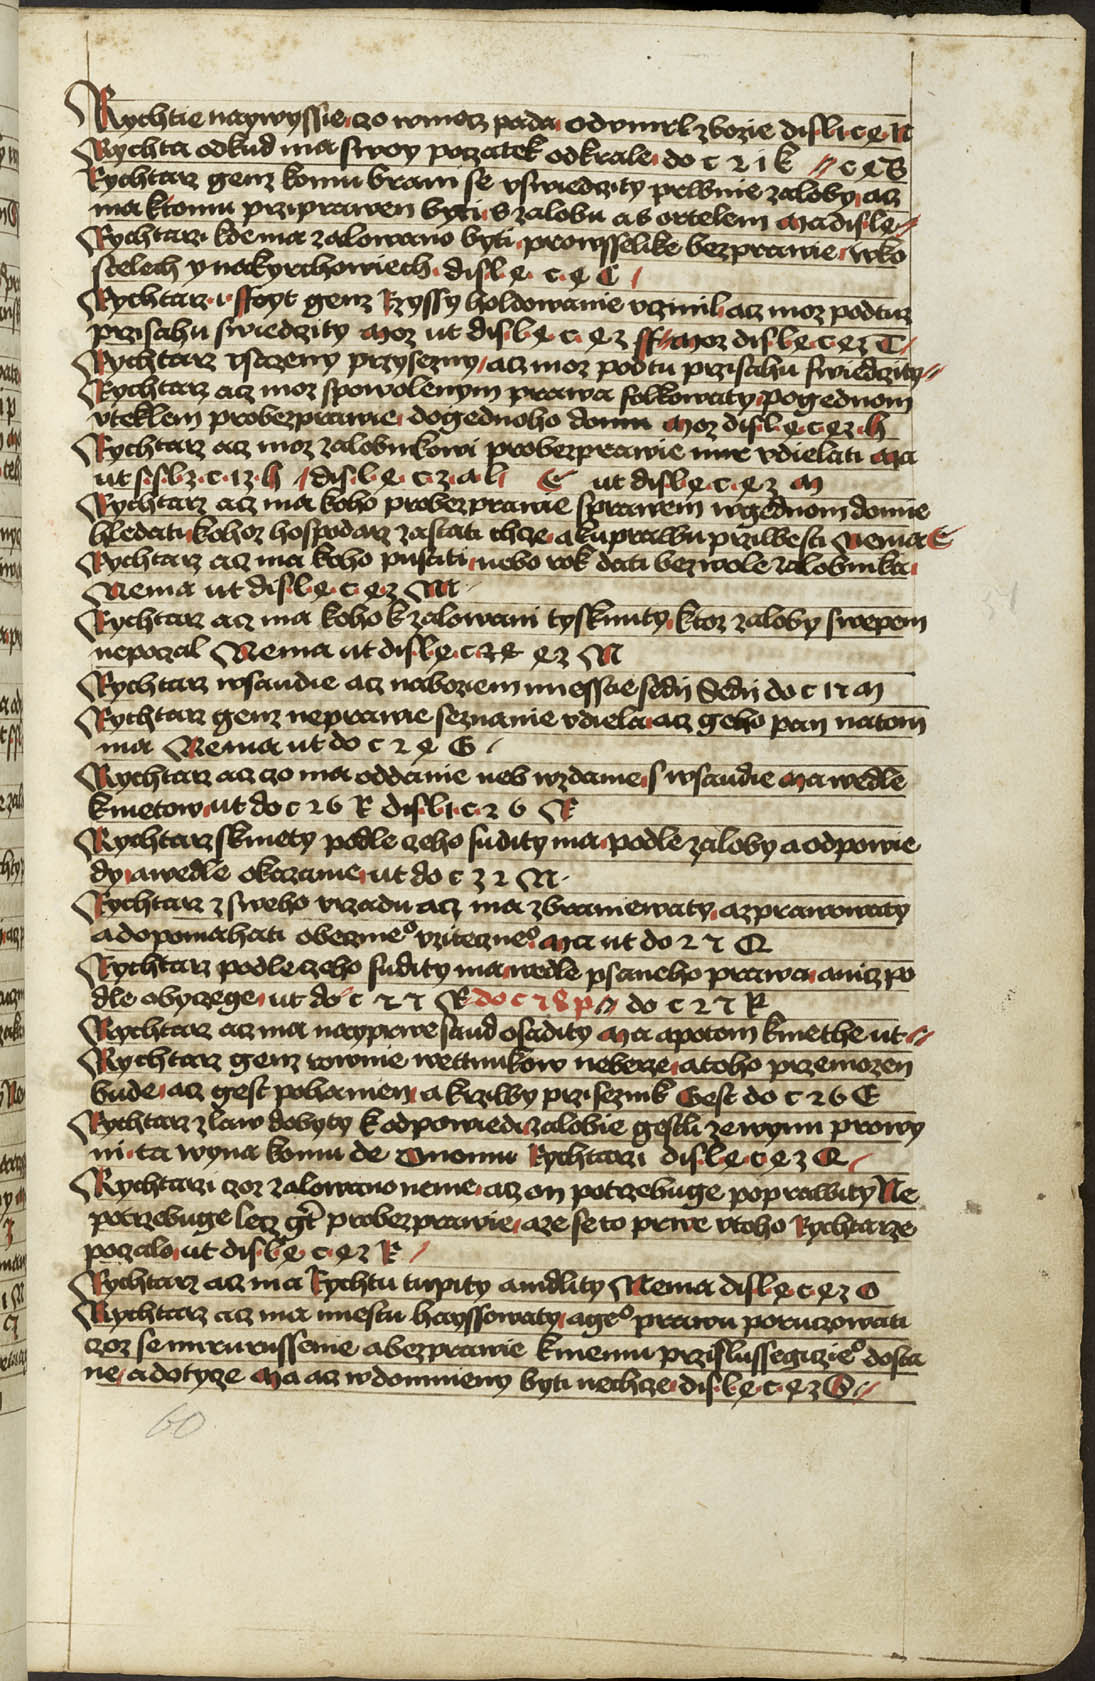 Rychtie naywyssie czo wmocz pada odvmrl zbozie dis l i c e N
Rychta odkud ma swoy poczatek odkrale do c 2 i k c e B
Rychtarz genz komu bram se vswiedczity prwnie zaloby acz
ma ktomu prziprawen byti s zalobu a s ortelem Ma dis l e
Rychtarz kde ma zalowano byti prowsselike bezprawie wko
stelech y nakyrchowiech dis l e c e C
Rychtarz i ffoyt genz Rzyssy holdowanie vczinil acz moz podtuz
przisahu swiedczity Moz ut dis l e c e z ff Moz dis l e c e z T
Rychtarz vsazeny przysezny acz moz podtu przisahu swiedczity
Rychtarz acz moz spowolenym prawa folkowaty pogednom
vteklem probezprawie dogednoho domu Moz dis l e c e z h
Rychtarz acz moz zalobnikowi probezprawie mir vdielati Ma
ut s s l z c 1z h dis l e c z a l E ut dis l e c e z M
Rychtarz acz ma koho probezprawie sprawem wgednom domie
hledati kohoz hospodarz zastati chcze a kuprawu prziwesti Nema E
Rychtarz acz ma koho pustati nebo rok dati bez wole zalobnika
Nema ut dis l e c e z M
Rychtarz acz ma koho k zalowani tysknuty ktoz zaloby swepem
nepoczal Nema ut dis l e c z e e z N
Rychtarz wsaudie acz naboziem miessae sedij Sedij do c 1 7 M
Rychtarz genz neprawie seznanie vdiela acz geho pan natom
ma Nema ut do c 2 e G
Rychtarz acz czo ma oddanie neb wzdanie s wsaudie Ma wedle
kmetow ut do c 2 6 R dis l i c 2 6 R
Rychtarz skmety podle czeho sudity ma podle zaloby a odpowie
dy a wedle okazanie ut do c 3 2 N
Rychtarz z sweho vrzadu acz ma zbraniewaty azprawowaty
a dopomahati obeczneo vziteczneo Ma ut do 2 7 Q
Rychtarz podle czeho sudity ma wedle psaneho prawa anizpo
dle obyczege ut do c 7 7 R do c 7 8 p do c 2 7 R
Rychtarz acz ma nayprwe saud osadity Ma apotom kmethe ut
Rychtarz genz rownie wettnikow neberze a toho przemozen
bude acz gest pohanien a krziwy prziseznik Gest do c 2 6 E
Rychtarz zlaw dobyty k odpowiedi zalobie gestli ze wynu prowy
ni ta wyna komu de Onomu Rychtarzi dis l e c e z Q
Rychtarzi czoz zalowano neme acz on potrzebuge poprawity Ne
potrzebuge lecz gt probezprawie aze se to prwe vtoho Rychtarze
poczalo ut dis l e c e z R
Rychtarz acz ma Rychtu tupity a mdlity Nema dis l e c e z O
Rychtarz acz ma miestu hayssowaty a geo prawu poruczowati
czoz se mirurussenie abezprawie kniemu przislussegiczieo dosta
ne a dotycze Ma acz w dommeny byti nechcze dis l e c e z S
60